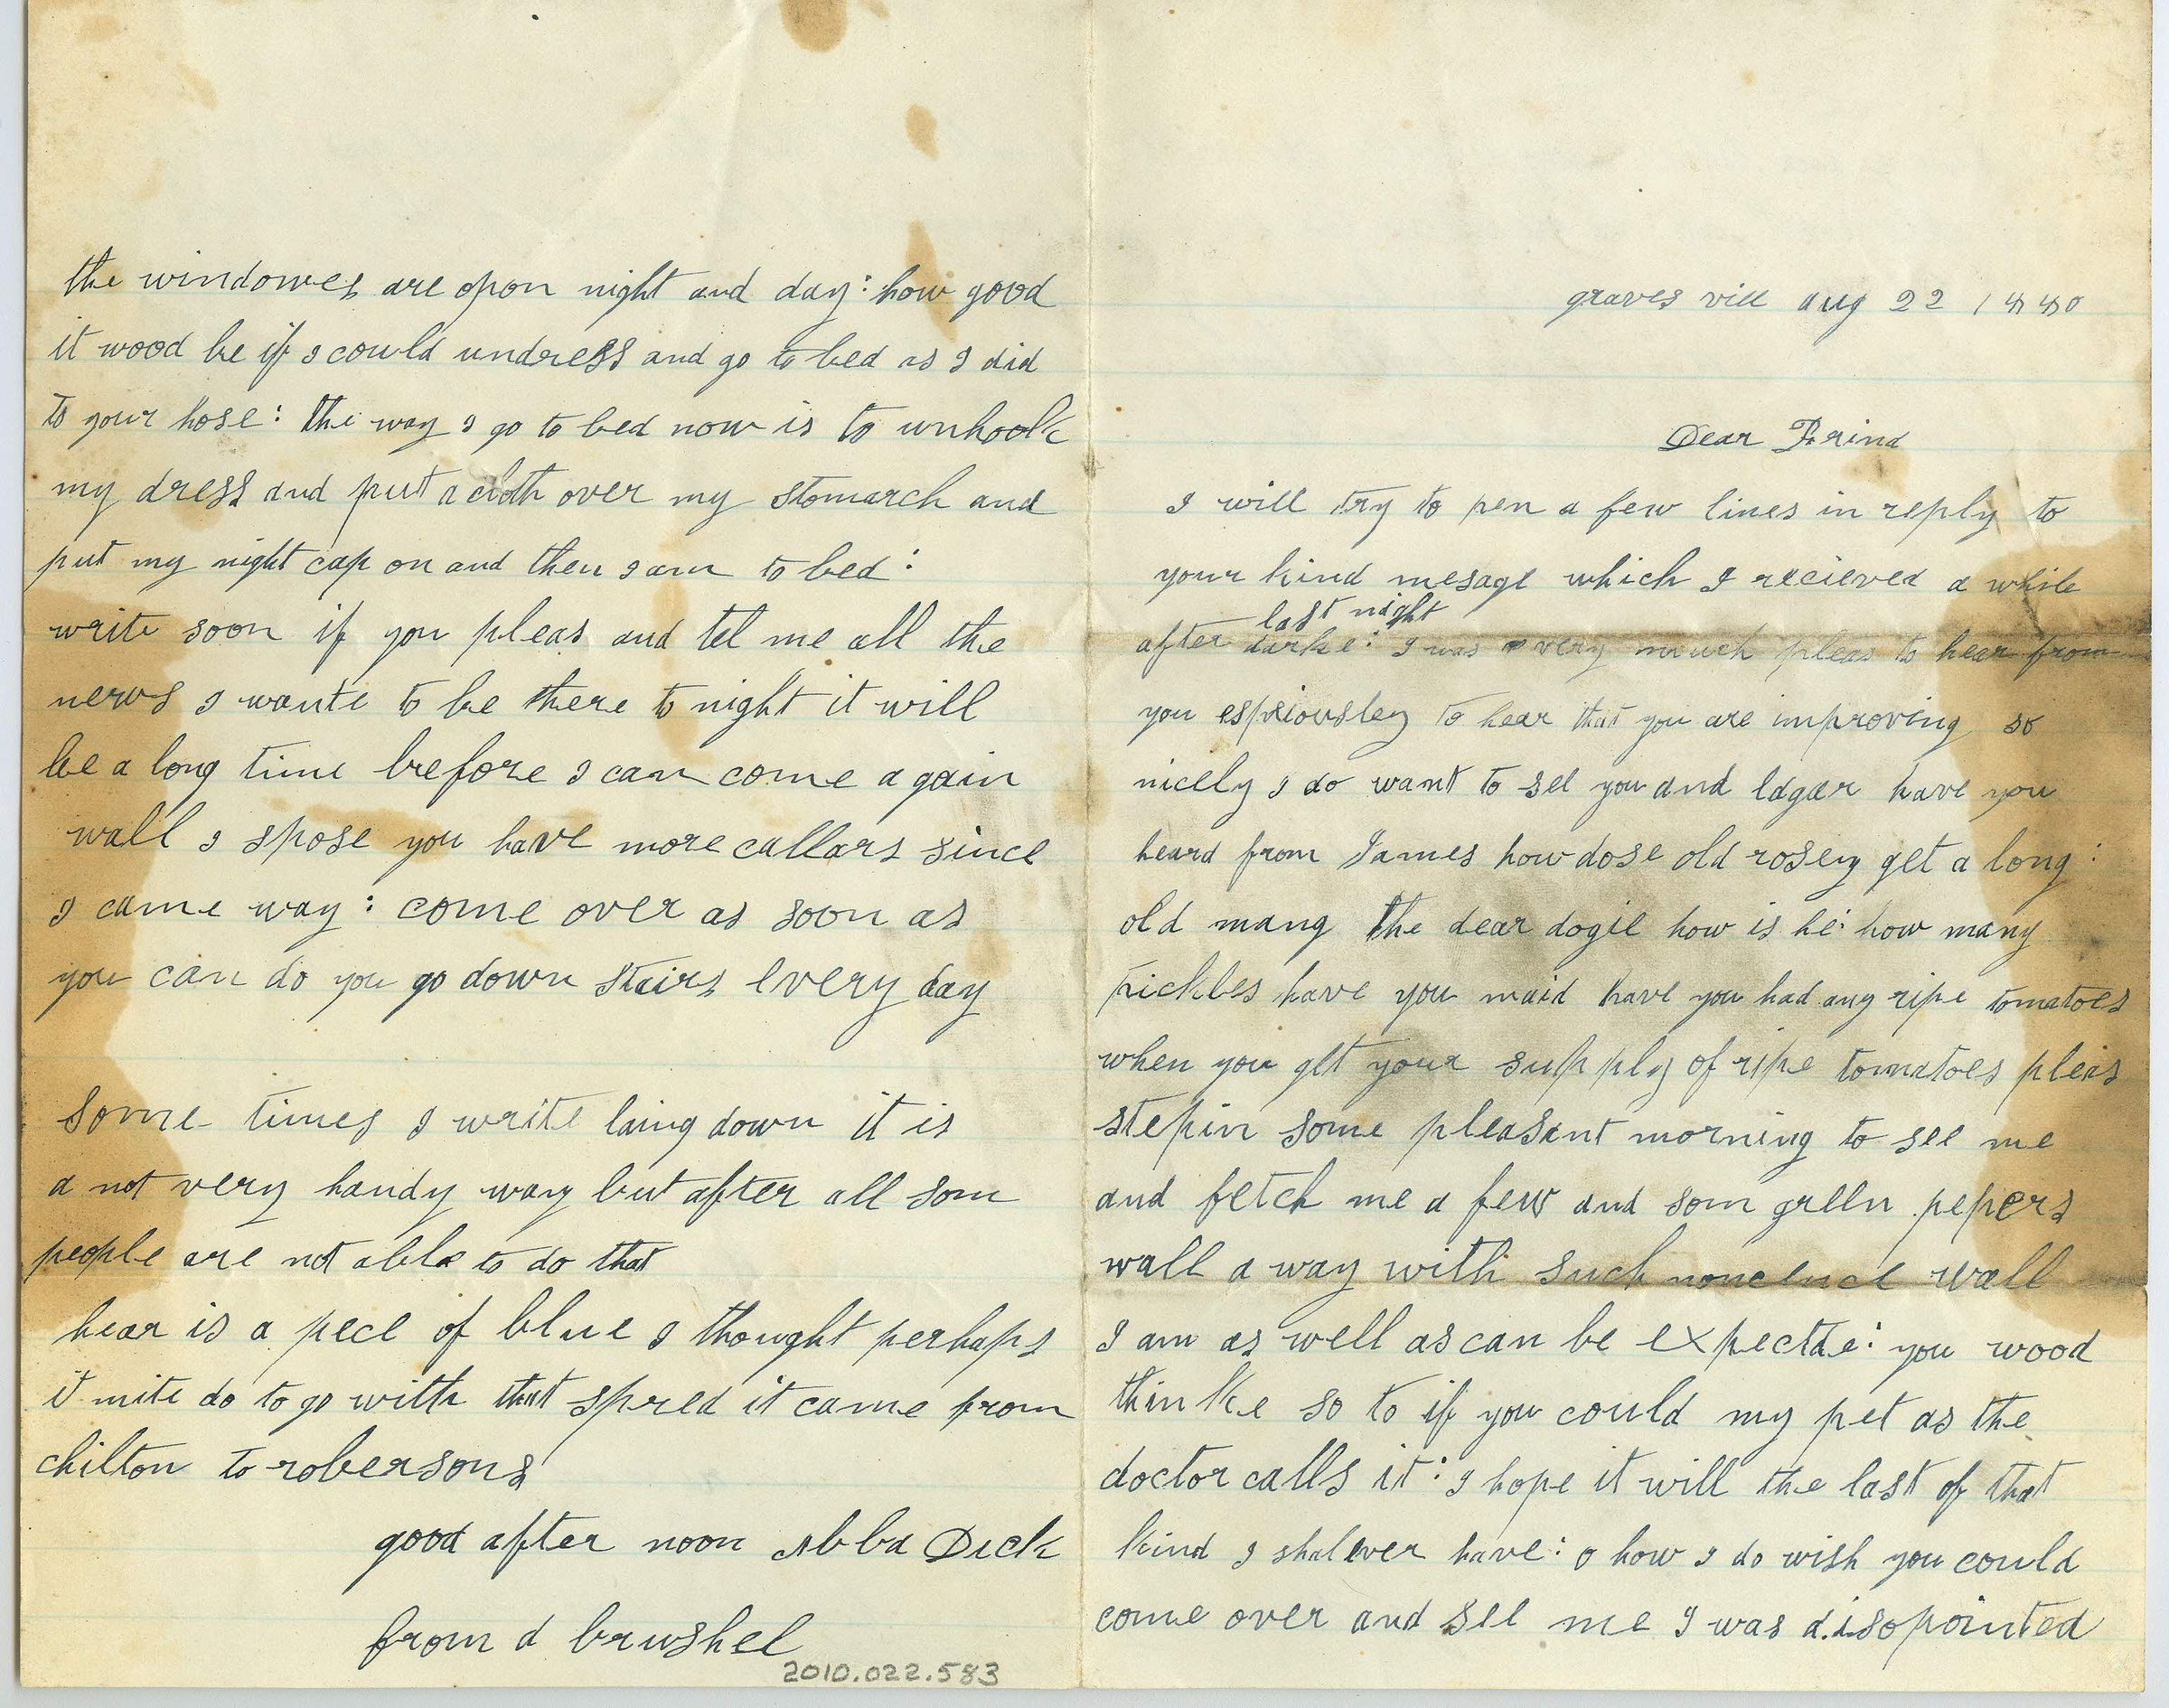 graves vill aug 22 1880
Dear Frind
I will try to pen a few lines in reply to
your kind mesage which I recieved a while
last night
after darke: I was very much pleas to hear from
you espsiousley to hear that you are improving so
nicely I do want to see you and Edgar have you
heard from James how dose old rosey get a long:
old mang the dear dogie how is he: how many
pickles have you maid have you had any ripe tomatoes
when you get your supply of ripe tomatoes pleas
stepin some pleasent morning to see me
and fetch me a few and som green pepers
wall a way with such noncence wall
I am as well as can be expectde: you wood
thinke so to if you could my pet as the
doctor calls it: I hope it will the last of that
kind I shal ever have: o how I do wish you could
come over and see me I was disopointed
the windowes are opon night and day: how good
it wood be if I could undress and go to bed as I did
to your hose: the way I go to bed now is to unhook
my dress and put a cloth over my stomarch and
put my night cap on and then I am to bed:
write soon if you pleas and tel me all the
news I wante to be there to night it will
be a long time brefore I can come a gain
wall I spose you have more callars since
I came way: come over as soon as
you can do you go down stairs every day
some times I write laing down it is
a not very handy way but after all som
people are not able to do that
hear is a pece of blue I thought perhaps
it mite do to go with that spred it came from
chilton to robersons
good after noon Abba Dick
from d brushel
2010.022.583